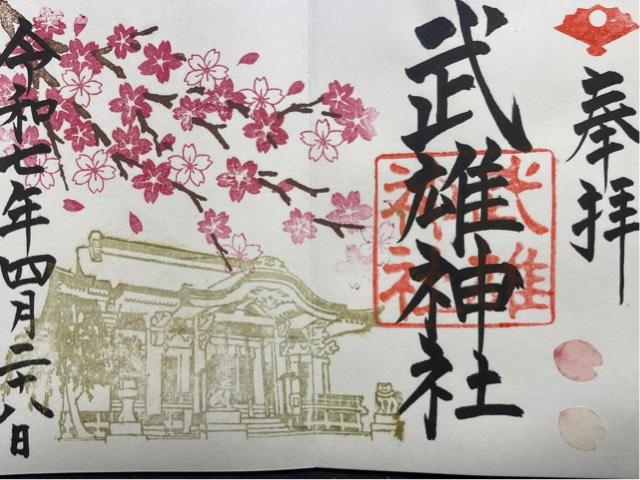 奉拝
武雄神社
武雄
神社
令和七年四月二十八日